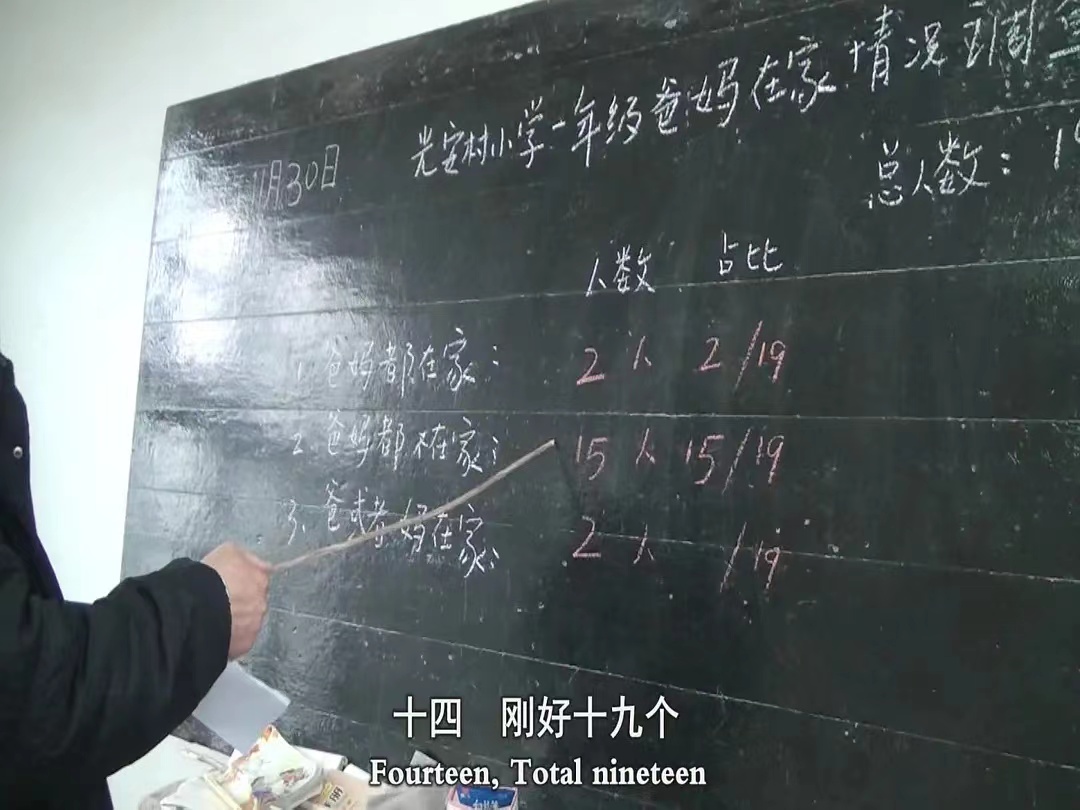 光宝村小学一年级爸妈在家情况调查
11月30日
总人数：19
人数 占比
1. 爸妈都在家： 2人 2/19
2. 爸妈都不在家： 15人 15/19
3. 爸或者妈在家： 2人 /19
十四 刚好十九个
Fourteen, Total nineteen